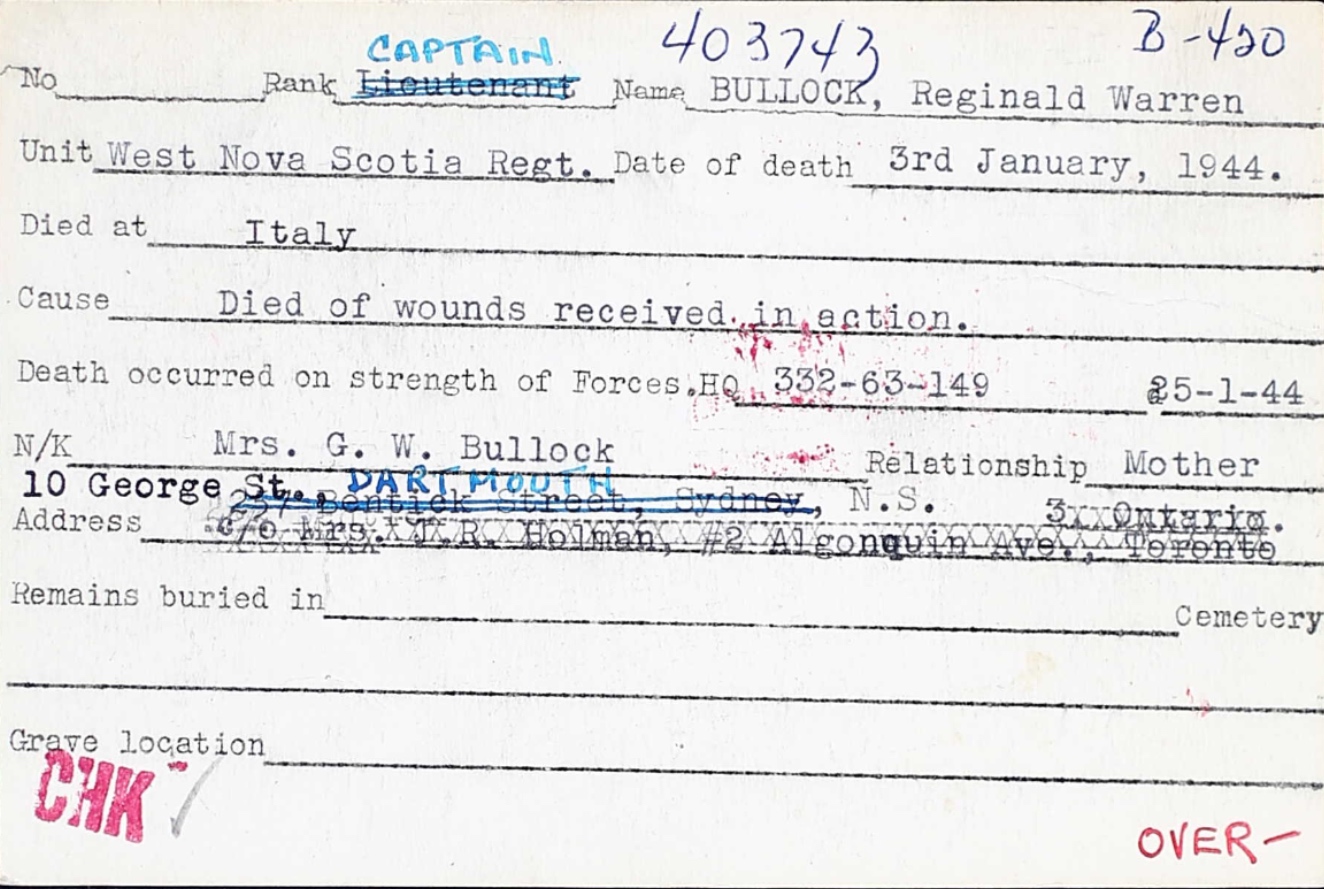 CAPTAIN 403743 B-420
No Rank Lieutenant Name BULLOCK, Reginald Warren
Unit West Nova Scotia Regt. Date of death 3rd January, 1944.
Died at Italy
Cause Died of wounds received in action.
Death occurred on strength of Forces.HQ 332-63-149 25-1-44
N/K Mrs. G. W. Bullock Relationship Mother
10 George St., DARTMOUTH
Bentick Street, Sydney, N.S. Ontario.
Address c/o Mrs. T.R. Holman, #2 Algonquin Ave., Toronto
Remains buried in Cemetery
Grave location
CHK
OVER-